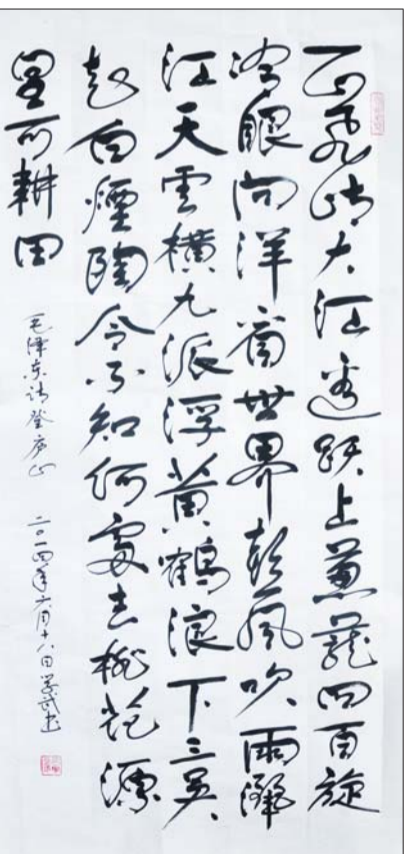 一山飛峙大江邊跃上葱蘢四百旋
冷眼向洋看世界热風吹雨灑
江天雲横九派浮黄鶴浪下三吴
起白煙陶令不知何處去桃花源
里可耕田
毛泽东诗登庐山 二〇一四年六月十八日学武书